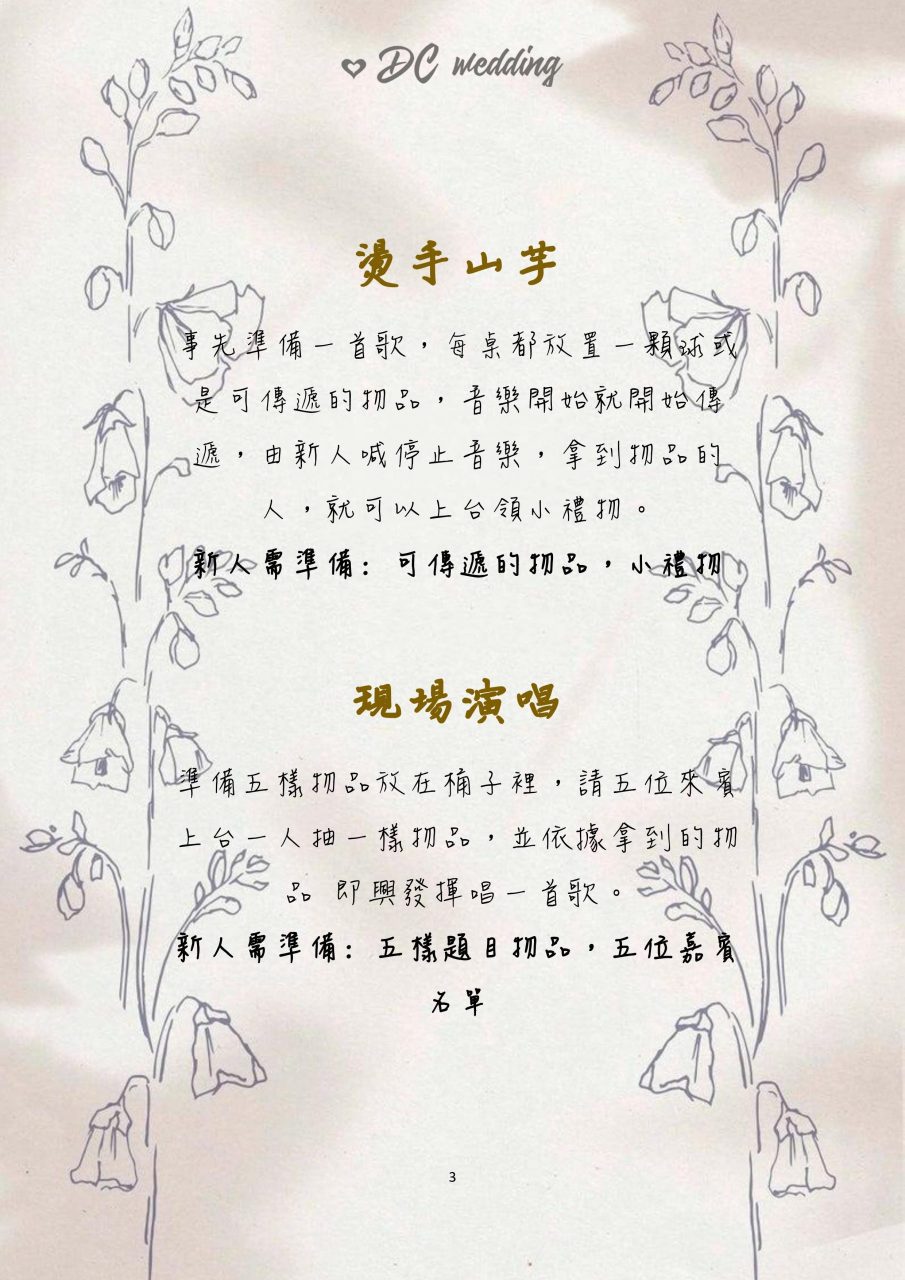 DC wedding
燙手山芋
事先準備一首歌，每桌都放置一顆球或
是可傳遞的物品，音樂開始就開始傳
遞，由新人喊停止音樂，拿到物品的
人，就可以上台領小禮物。
新人需準備：可傳遞的物品，小禮物
現場演唱
準備五樣物品放在桶子裡，請五位來賓
上台一人抽一樣物品，並依據拿到的物
品 即興發揮唱一首歌。
新人需準備：五樣題目物品，五位嘉賓
名單
3